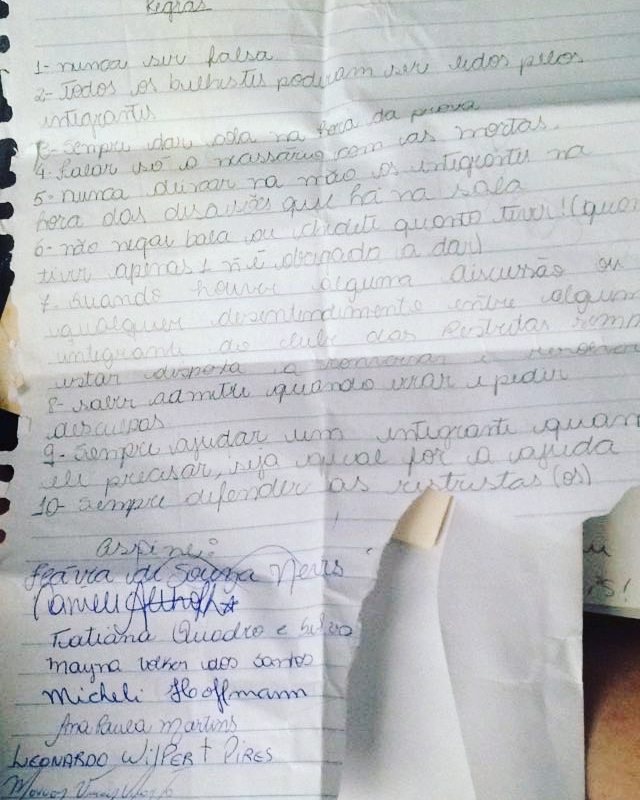 Regras
1- nunca ser falsa
2- Todos os bilhetis poderam ser lidos pelos
integrantis
3- Sempre dar cola na hora da prova
4- Falar só o nessário com as mortas.
5- nunca deixar na mão os integrantis na
hora das discusões que há na sala
6- não negar bala ou chiclete quanto tiver! (quan
tiver apenas 1 ñ é obrigado a dar)
7- Quando houver alguma discussão ou
qualquer desentendimento entre algum
integrante do clube das restritas semp
estar disposta a conversar e resolver
8- saber admitir quando errar e pedir
desculpas
9- Sempre ajudar um integrante quan
ele precisar, seja qual for a ajuda
10- Sempre defender as restristas (os)
Flávia de Souza Neris
Tatiana Quadro e
Mayna dos Santos
Micheli Hoffmann
Ana Paula Martins
LEONARDO WilPERt PIRES
Marcos